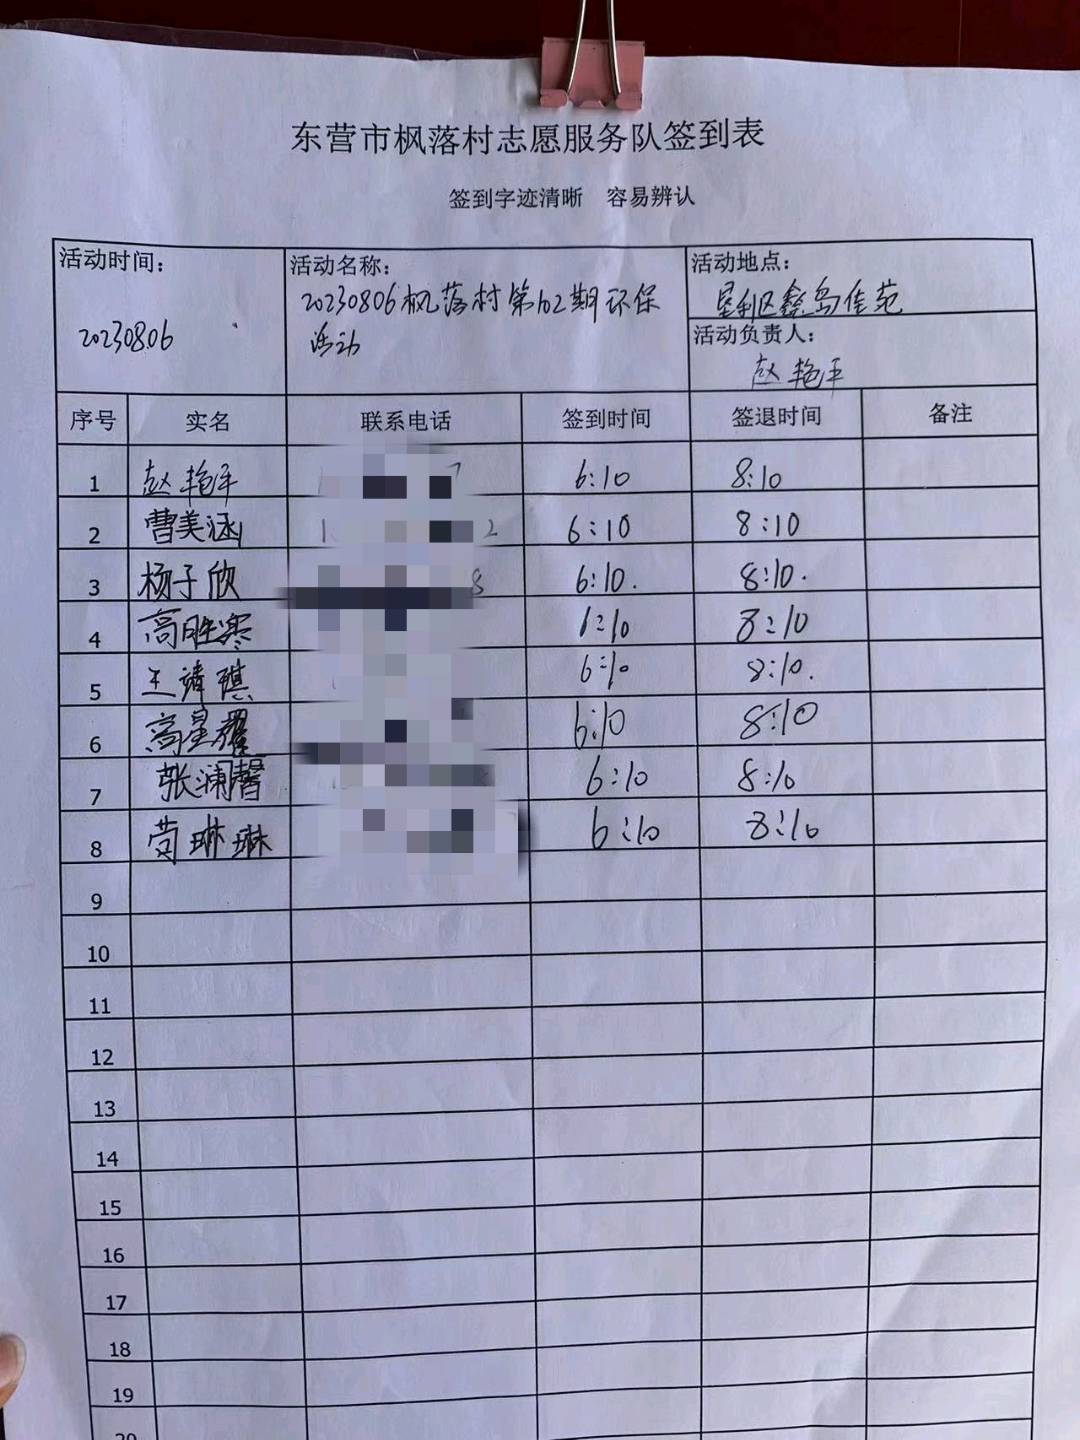 东营市枫落村志愿服务队签到表
签到字迹清晰 容易辨认
活动时间：
20230806
活动名称：
20230806枫落村第102期环保
活动
活动地点：
垦利区鑫岛佳苑
活动负责人：
赵艳平
序号 实名 联系电话 签到时间 签退时间 备注
1 赵艳平 7 6:10 8:10
2 曹美涵 1 2 6:10 8:10
3 杨子欣 8 6:10. 8:10.
4 高胜寒 6:10 8:10
5 王靖琪 6:10 8:10.
6 高星耀 6:10 8:10
7 张澜馨 6:10 8:10
8 苟琳琳 6:10 8:10
9
10
11
12
13
14
15
16
17
18
19
20